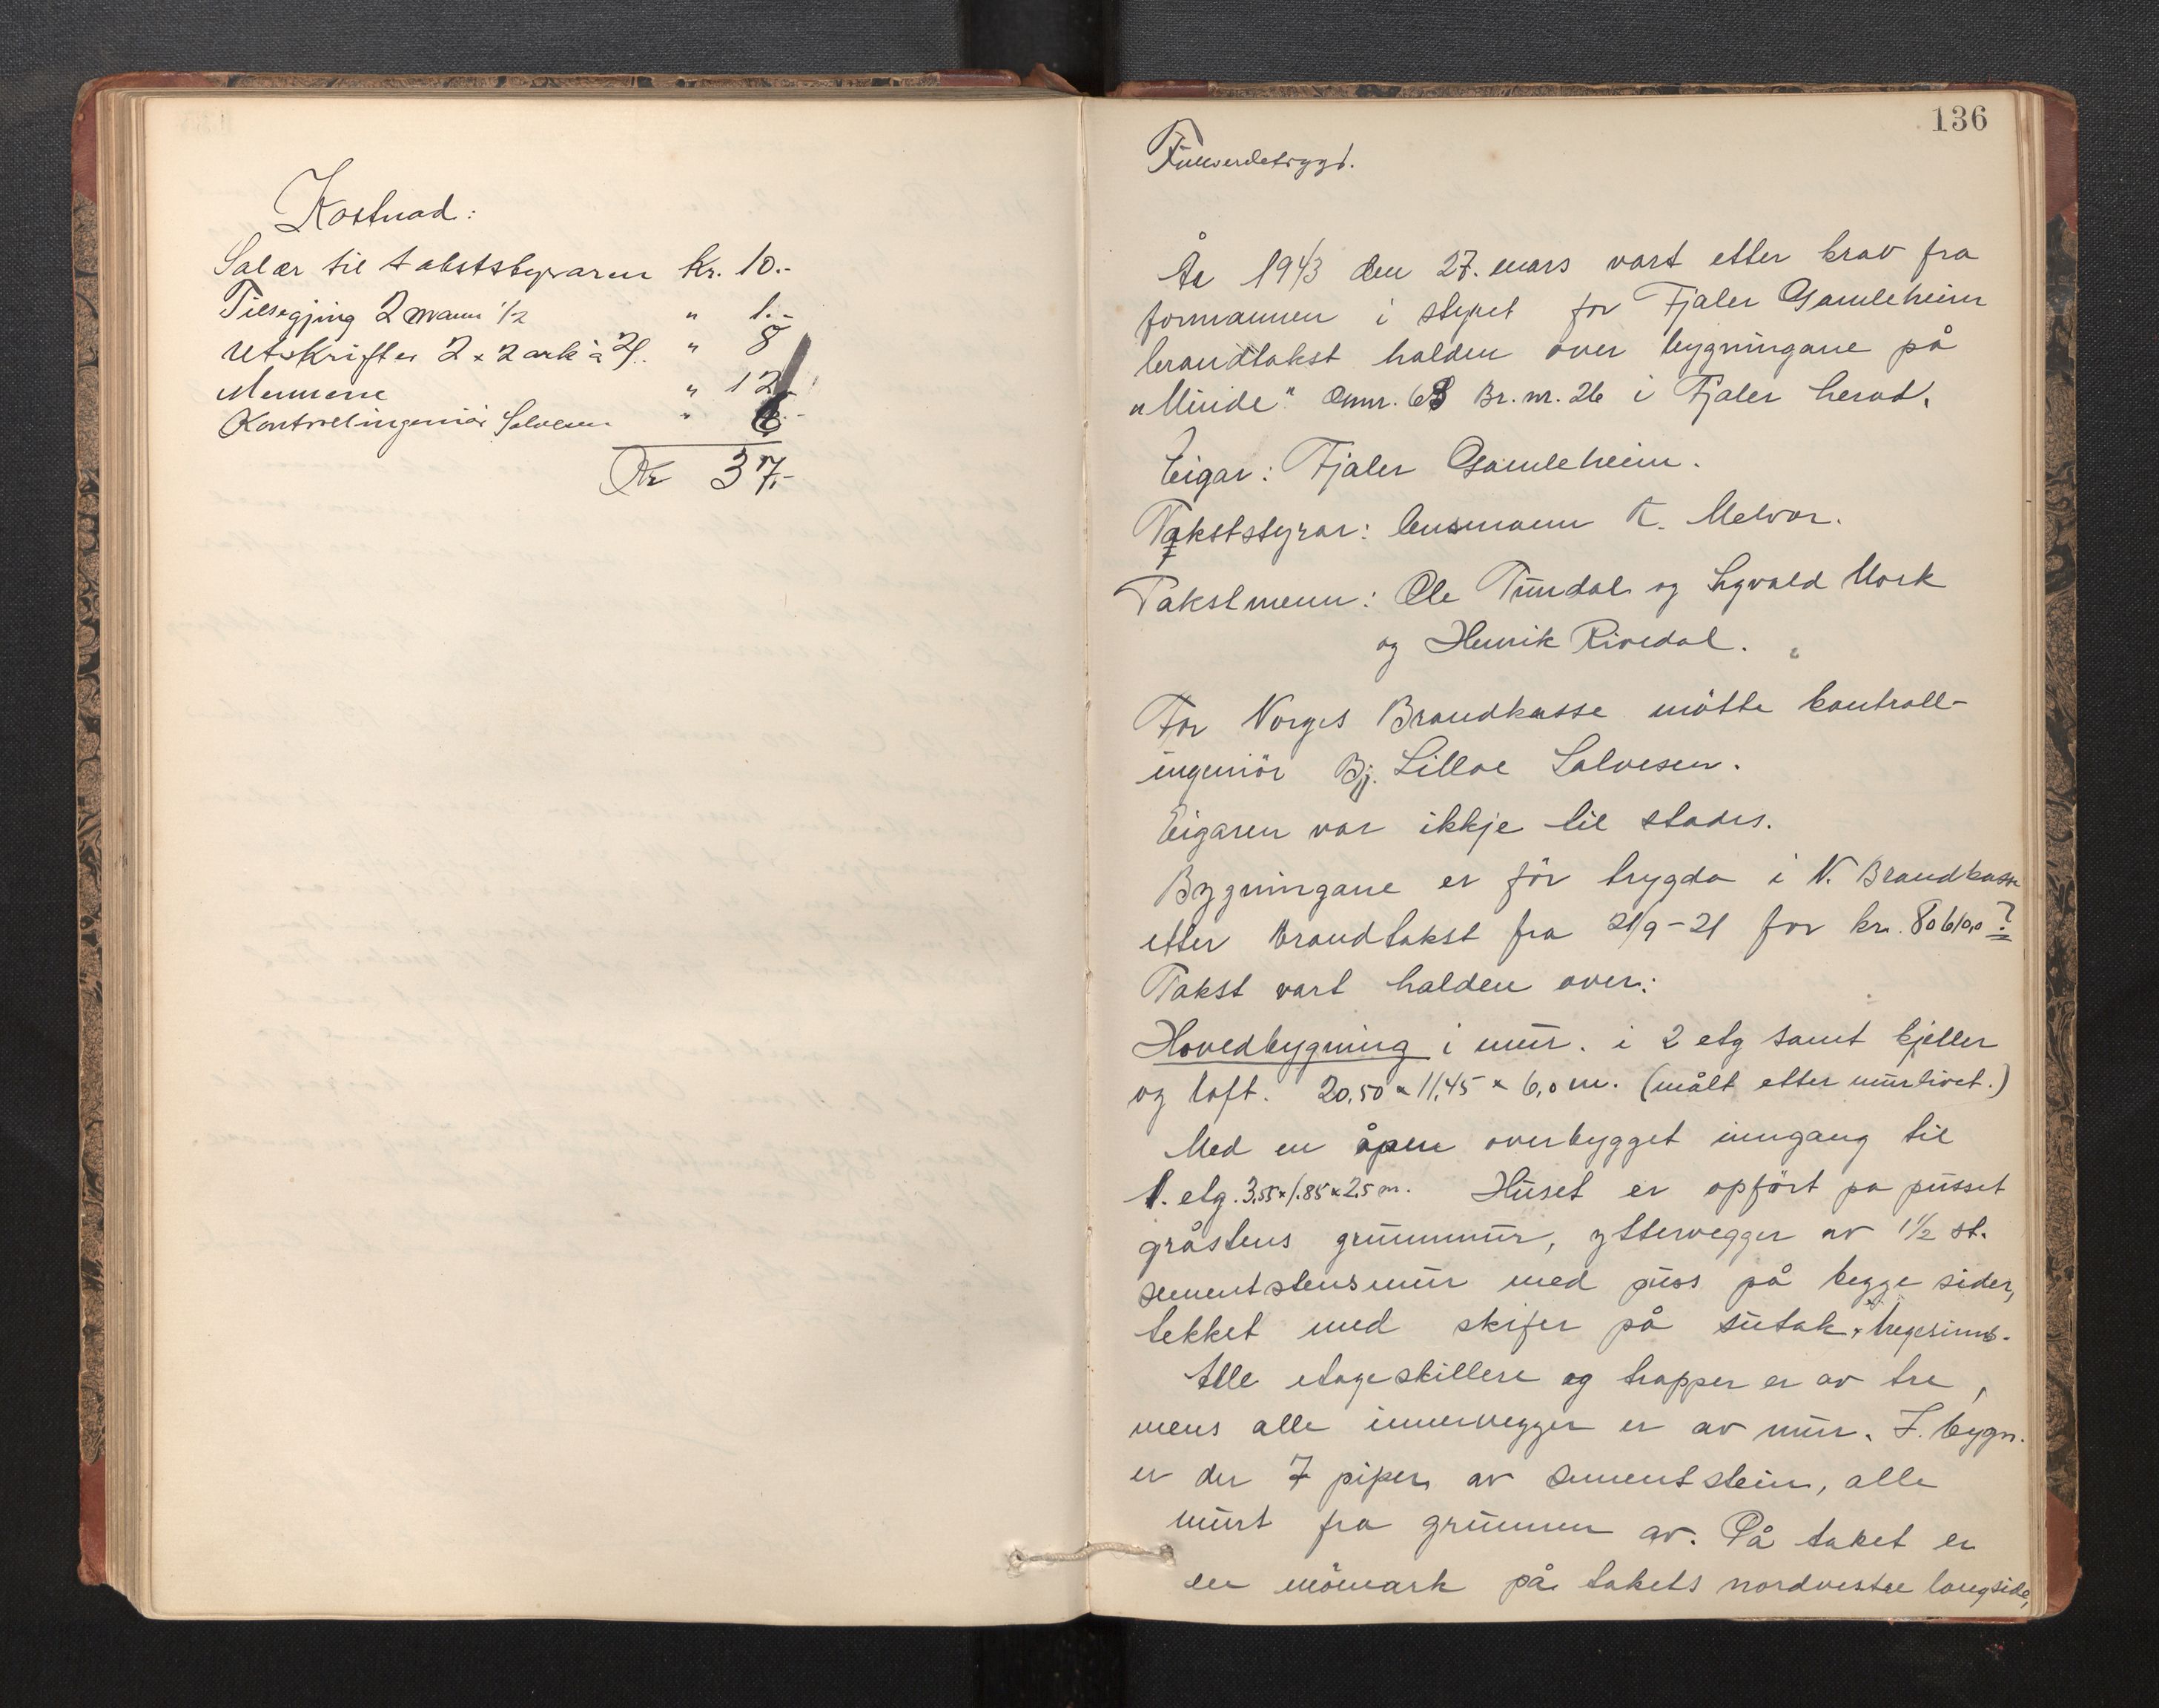 Kostnad:
Salær til takststyraren kr. 10.-
Tilsegjing 2 mann ½ " 1.-
Utskrifter 2 x 2 ark à 2/.. " 8
Mennene " 12.-
Kontrollingeniør Salvesen " 6.-
Kr 37.-
136
Fullverdetrygd.
År 1943 den 27. mars vart etter krav fra
formannen i styret for Fjaler Gamleheim
brandtakst halden over bygningane på
"Minde" Gnr. 68 Br. nr. 26 i Fjaler herad.
Eigar: Fjaler Gamleheim.
Takststyrar: lensmann K. Melvær.
Takstmenn: Ole Tundal og Sigvald Mork
og Henrik Rivedal.
For Norges Brandkasse møtte kontroll-
ingeniør Bj. Lilloe Salvesen.
Eigaren var ikkje til stades.
Bygningane er før trygda i N. Brandkasse
etter brandtakst fra 21/9-21 for kr. 80610,0 ?
Takst vart halden over:
Hovedbygning i mur. i 2 etg samt kjeller
og loft. 20,50 x 11,45 x 6,0 m. (målt etter murlivet.)
Med en åpen overbygget inngang til
1. etg. 3,55 x 1.85 x 2,5 m. Huset er opført på pusset
gråstens grunnmur, yttervegger av 1½ st.
sementstensmur med puss på begge sider,
tekket med skifer på sutak
Alle etageskillere og trapper er av tre,
mens alle innervegger er av mur. I. bygn.
er der 7 piper av sementstein, alle
murt fra grunnen av. På taket er
en på takets nordvestre langside,